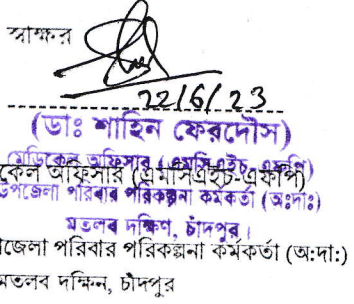 স্বাক্ষর
22/6/23
(ডাঃ শাহিন ফেরদৌস)
(মেডিকেল অফিসার (এমসিএইচ-এফপি)
কেল অফিসার (এমসিএইচ-এফপি)
উপজেলা পরিবার পরিকল্পনা কর্মকর্তা (অঃদাঃ)
মতলব দক্ষিণ, চাঁদপুর।
জেলা পরিবার পরিকল্পনা কর্মকর্তা (অ:দা:)
মতলব দক্ষিন, চাঁদপুর